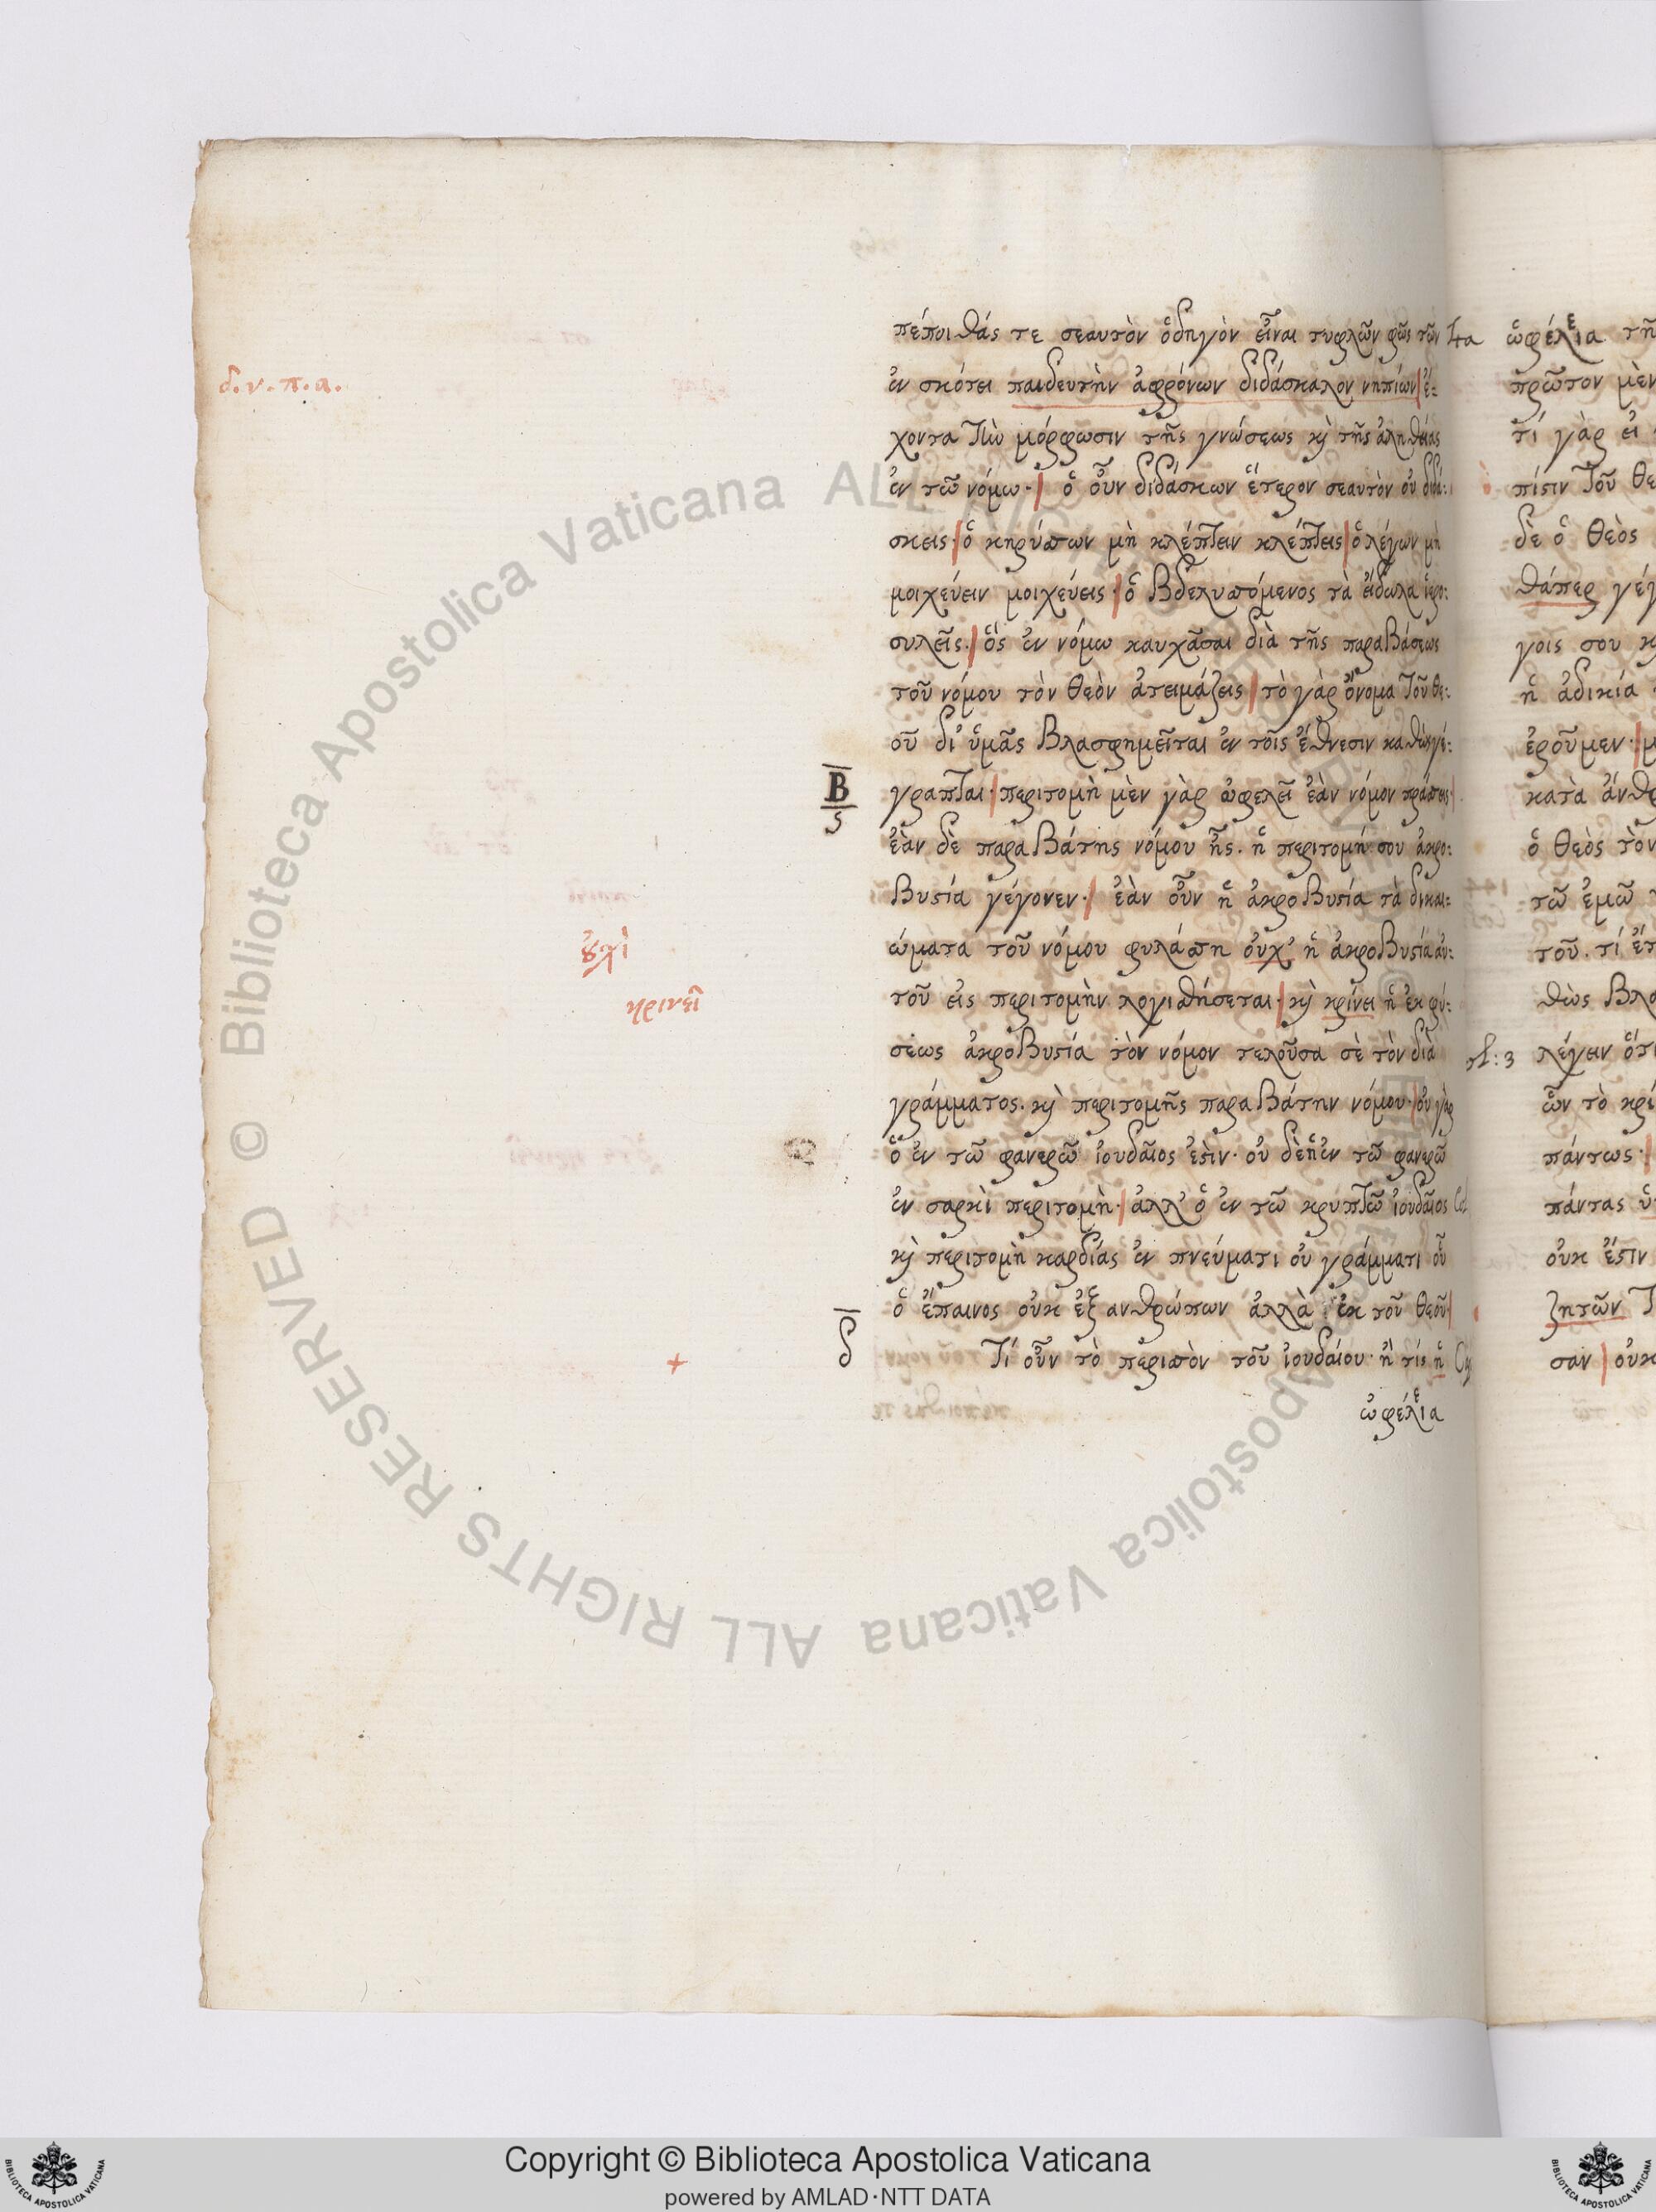 πέποιθάς τε σεαυτὸν ὁδηγὸν εἶναι τυφλῶν φῶς τῶν
δ. ν. π. α.
ἐν σκότει παιδευτὴν ἀφρόνων διδάσκαλον νηπίων ἔ-
χοντα τὴν μόρφωσιν τῆς γνώσεως κὶ τῆς ἀληθείας
ἐν τῶ νόμω· ὁ οὖν διδάσκων ἕτερον σεαυτὸν οὐ διδά:
σκεις· ὁ κηρύσσων μὴ κλέπτειν κλέπτεις ὁ λέγων μὴ
μοιχεύειν μοιχεύεις· ὁ βδελυσσόμενος τὰ εἴδωλα ἱερο:
συλεῖς· ὃς ἐν νόμω καυχᾶσαι διὰ τῆς παραβάσεως
τοῦ νόμου τὸν θεὸν ἀτειμάζεις τὸ γὰρ ὄνομα τοῦ θε:
οῦ δι' ὑμᾶς βλασφημεῖται ἐν τοῖς ἔθνεσιν καθὼς γέ:
Β
ς
γραπται· περιτομὴ μὲν γὰρ ὠφελεῖ ἐὰν νόμον πράσσεις·
ἐὰν δὲ παραβάτης νόμου ἦς. ἡ περιτομή σου ἀκρο:
βυστία γέγονεν· ἐὰν οὖν ἡ ἀκροβυστία τὰ δικαι:
οὐχὶ
ώματα τοῦ νόμου φυλάσση οὐχ' ἡ ἀκροβυστία αὐ:
κρινεῖ
τοῦ εἰς περιτομὴν λογισθήσεται· κὶ κρίνει ἡ ἐκ φύ:
σεως ἀκροβυστία τὸν νόμον τελοῦσα σὲ τὸν διὰ
γράμματος. κὶ περιτομῆς παραβάτην νόμου· οὐ γὰρ
ὁ ἐν τῶ φανερῶ ἰουδαῖος ἐστὶν· οὐ δὲ ἡ ἐν τῶ φανερῶ
ἐν σαρκὶ περιτομὴ· ἀλλ' ὁ ἐν τῶ κρυπτῶ ἰουδαῖος
κὶ περιτομὴ καρδίας ἐν πνεύματι οὐ γράμματι οὗ
ὁ ἔπαινος οὐκ ἐξ ανθρώπων ἀλλὰ ἐκ τοῦ θεοῦ
δ
+
Τί οὖν τὸ περισσὸν τοῦ ἰουδαίου· ἢ τίς ἡ
ὠφέλεια
ὠφέλεια τῆ
πρῶτον μὲν
τί γὰρ εἰ
πίστιν τοῦ θε
δὲ ὁ θεὸς
θάπερ γέγ
γοις σου κ
ἡ ἀδικία
ἐροῦμεν· μ
κατὰ ἄνθρ
ὁ θεὸς τὸν
τῶ ἐμῶ
του. τί ἔτ
θὼς βλα
λέγειν ὅτι
ὧν τὸ κρί
πάντως·
πάντας ὑ
οὐκ ἔστιν
ζητῶν τ
σαν οὐκ
© Biblioteca Apostolica Vaticana ALL RIGHTS RESERVED © Biblioteca Apostolica Vaticana ALL RIGHTS RESERVED
Copyright © Biblioteca Apostolica Vaticana
powered by AMLAD·NTT DATA
BIBLIOTECA APOSTOLICA VATICANA
BIBLIOTECA APOSTOLICA VATICANA